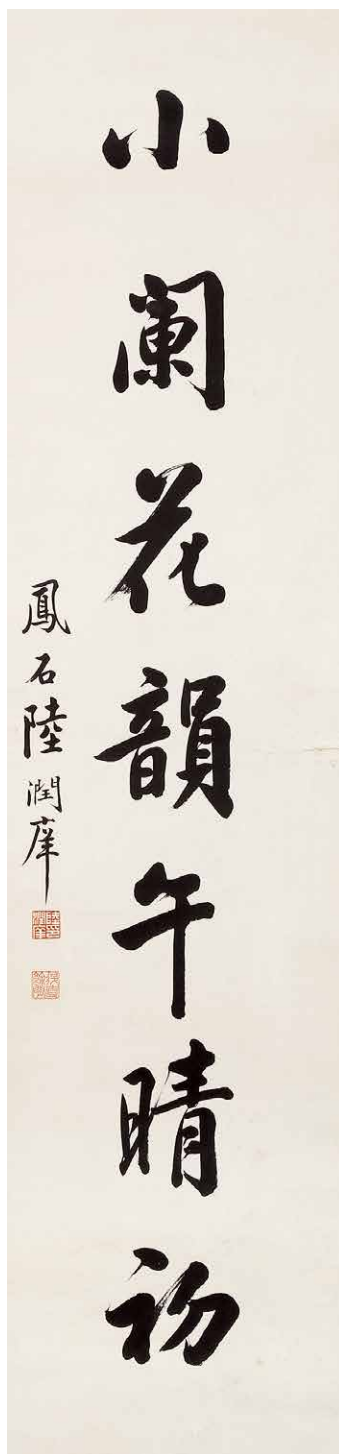 小阑花韻午晴初
鳳石陸潤庠